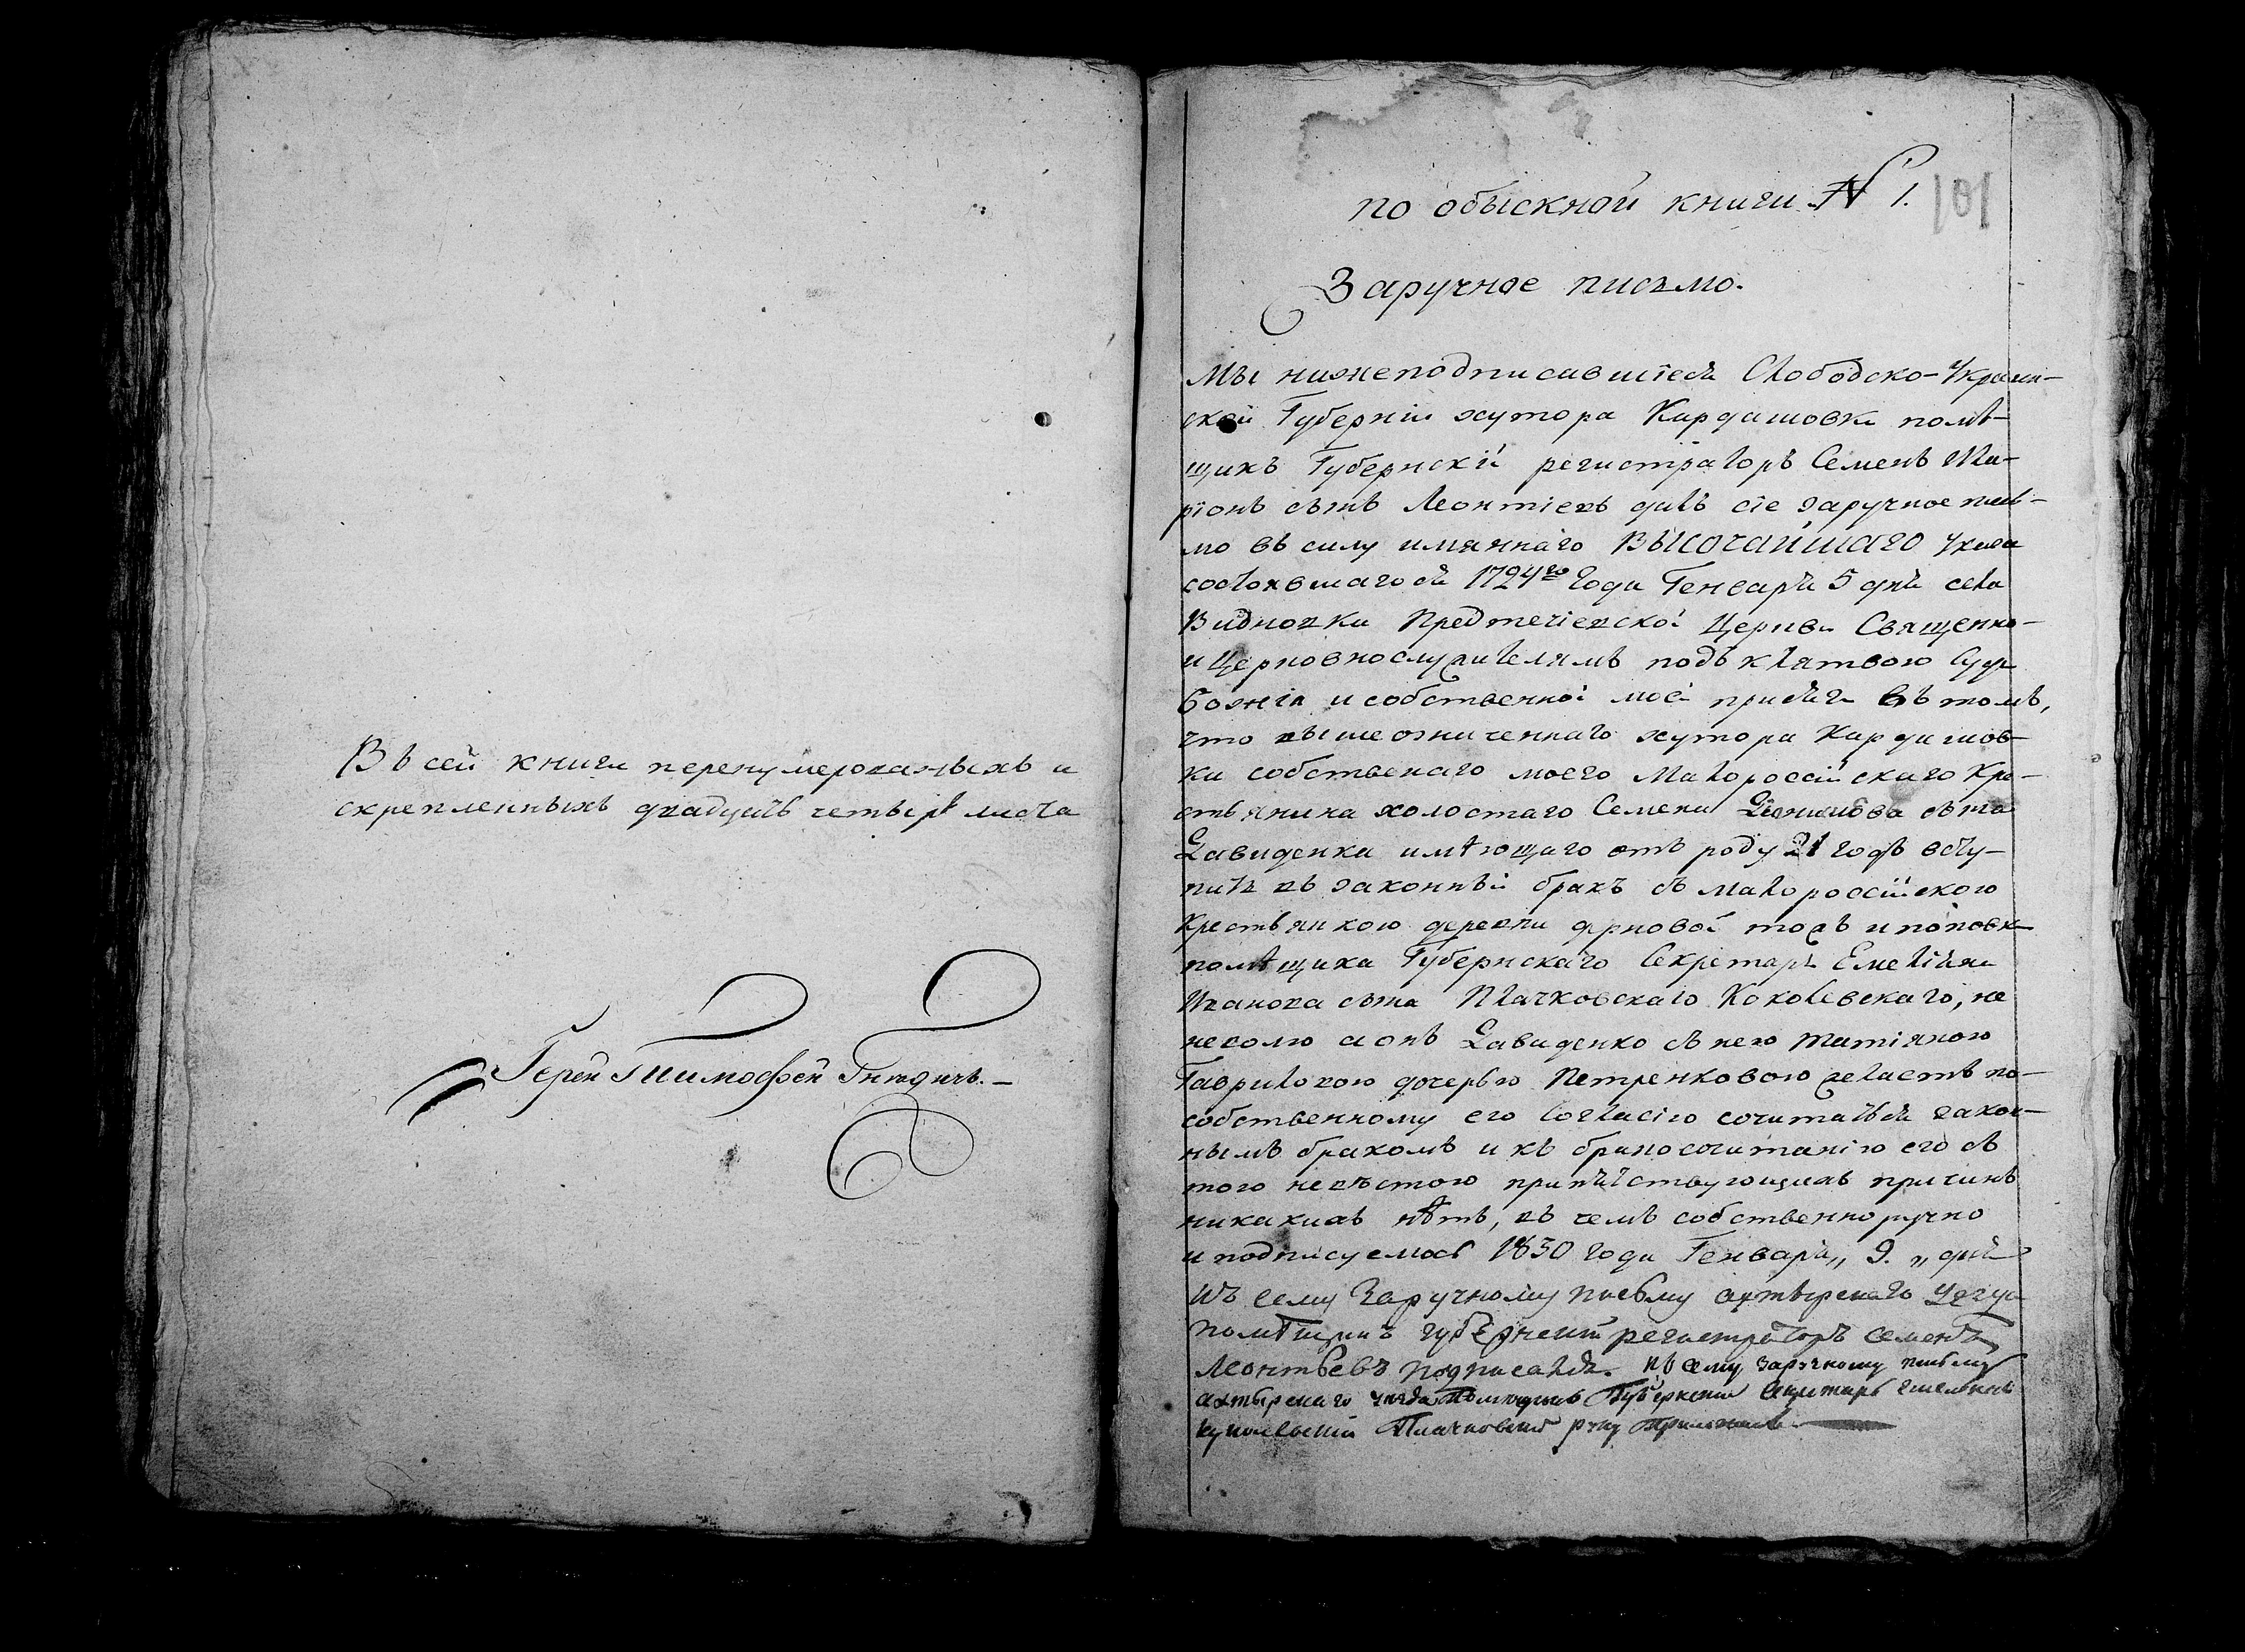 Въ сей книги перенумерованыхъ и
скрепленныхъ двадцать четыре листа
Іерей Тимофей Гнедичь.
по обыскной книги № 1.
101
Заручное письмо.
Мы нижеподписавшіеся Слободско-Украин-
ской Губерніи хутора Кардашовки помѣ-
щикъ Губернскій регистраторъ Семенъ Ила-
ріонъ сынъ Леонтіевъ далъ сіе заручное пись-
мо въ силу имяннаго Высочайшаго указа
состоявшагося 1724го Года Генваря 5 дня села
Видновки Предтечіевской Церкви Священно-
и Церковнослужителямъ подъ клятвою Суда
Божія и собственной моей присяги въ томъ,
что вышеозначеннаго хутора Кардашов-
ки собственаго моего Малороссійскаго Кре-
стьянина холостаго Семена сына
Давиденка имѣющаго отъ роду 21 годъ всту-
пить въ законный бракъ съ Малороссійскою
Крестьянкою деревни дерновой тожъ и поповки
помѣщика Губернскаго Секретаря Емеліяна
Иванова сына Плачковскаго Коколевскаго, не
неволю а онъ Давиденко съ нею Татіяною
Гавриловою дочерью Петренковою желаетъ по-
собственному его согласію сочитаться закон-
нымъ бракомъ и къ бракосочитанію его съ
тою невѣстою препятствующихъ причинъ
никакихъ нѣтъ, въ чемъ собственноручно
и подписуемось 1830 Года Генваря „ 9. „ дня
Къ сему Заручному письму ахтырскаго уезда
помѣщикъ губернскій регистраторъ Семенъ
Леонтьевъ подписался. къ сему заручному письму
ахтырскаго уезда Помещикъ Губернский Секретарь Емельянъ
Куколевский Плачковский руку приложилъ